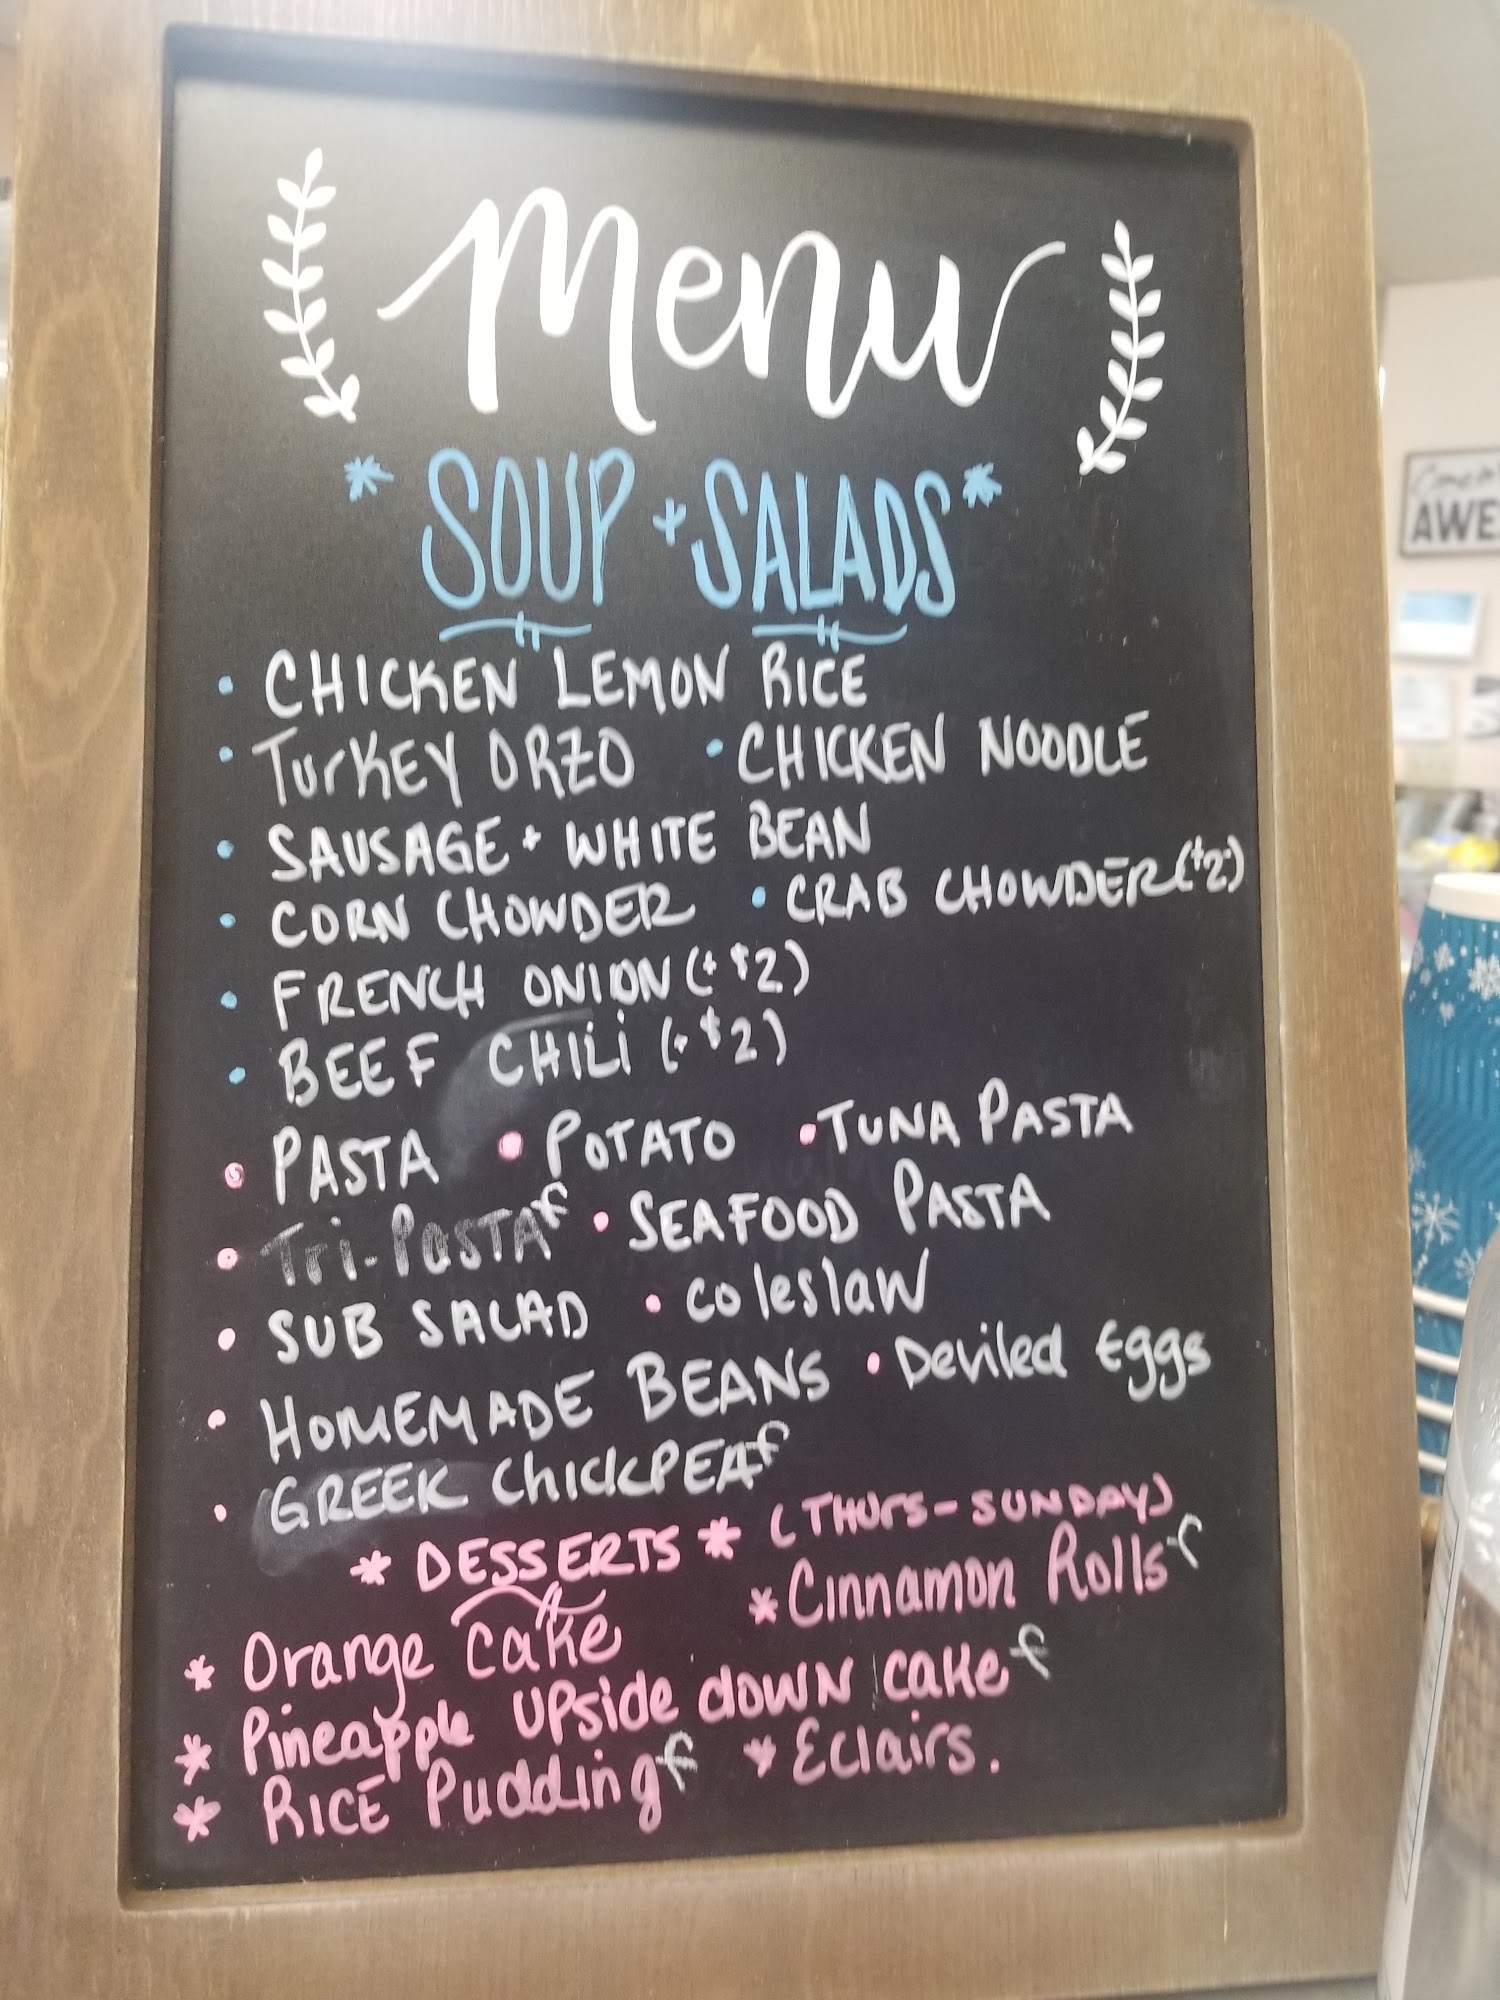 Menu
* SOUP + SALADS *
• CHICKEN LEMON RICE
• TurKEY ORZO • CHICKEN NOODLE
• SAUSAGE + WHITE BEAN
• CORN CHOWDER • CRAB CHOWDER (+2)
• FRENCH ONION (+$2)
• BEEF CHILI (+$2)
• PASTA • POTATO • TUNA PASTA
• Tri-PASTA f • SEAFOOD PASTA
• SUB SALAD • coleslaw
• HOMEMADE BEANS • Deviled Eggs
• GREEK ChickPEA f
* DESSERTS * (THUrS-SUNDAY)
* Orange Cake * Cinnamon Rolls f
* Pineapple upside down cake f
* RICE Pudding f * Eclairs.
AWE